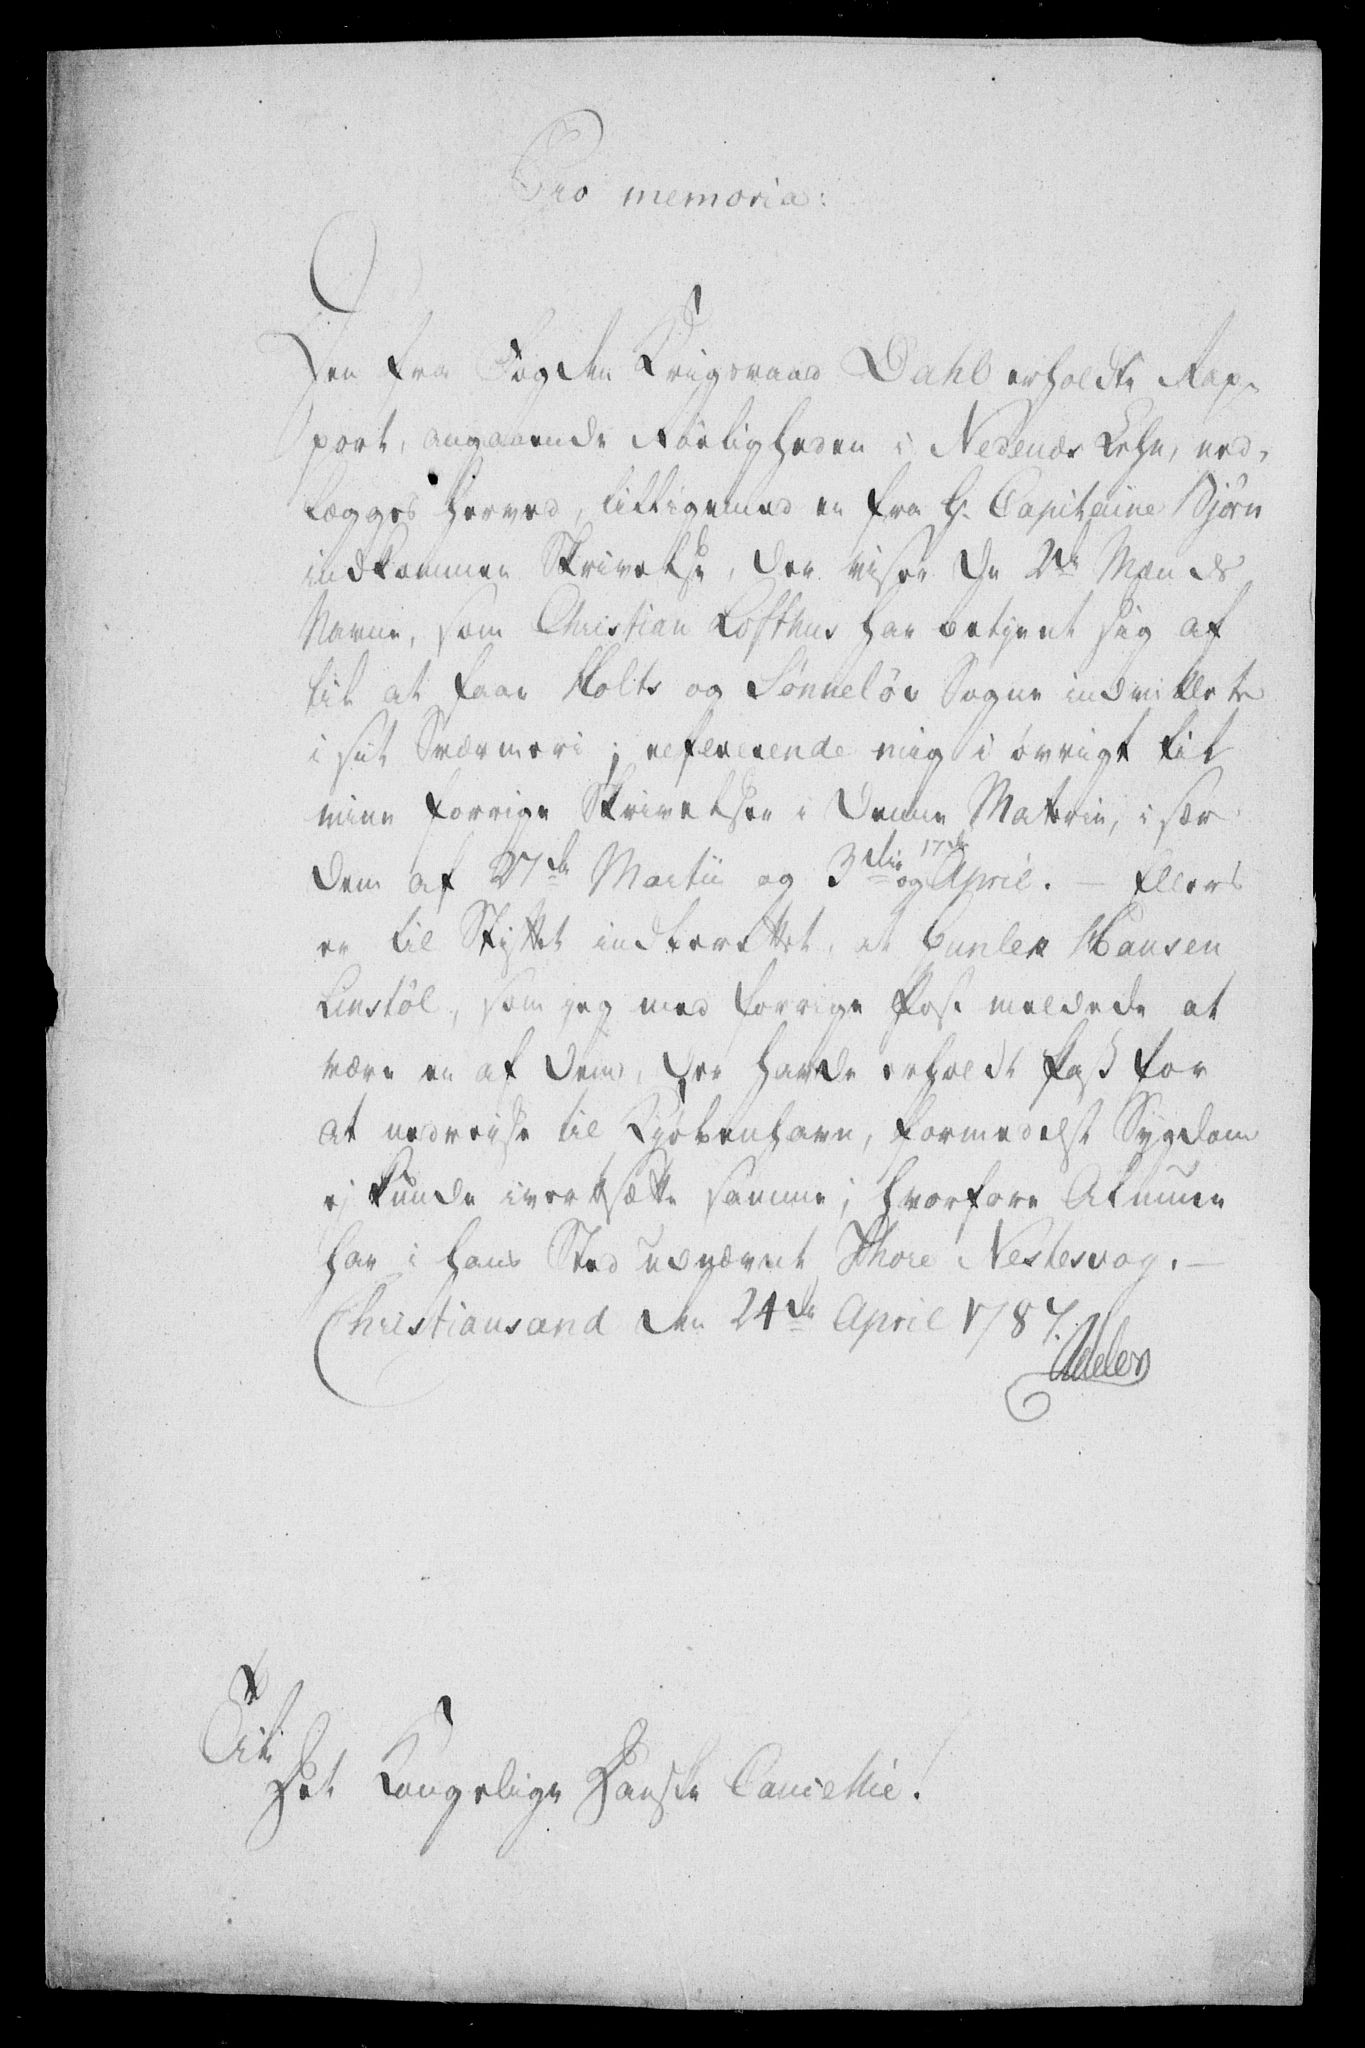 Pro memoria:
Den fra Fogden Krigsraad Dahl erholdte Rap-
port, angaaende Roeligheden i Nedenæs Lehn, ved-
lægges herved, tilligemed en fra Hr. Capitaine Bjørn
indkommen Skrivelse, der viser de 2de Mænds
Navne, som Christian Lofthus har betjent sig af
til at faae Holts og Sønneløv Sogne indviklet
i sit Sværmeri; refererende mig i øvrigt til
mine forrige Skrivelser i denne Materie, i sær
dem af 27de Martii og 3die og 17de April. – Ellers
er til Stiftet indberettet, at Gunler Hansen
Linstøl, som jeg med forrige Post meldede at
være en af dem, der havde erholdt Pass for
at nedreise til Kjøbenhavn, formedelst Sygdom
ej kunde iverksætte samme; hvorfore Almuen
har i hans Sted udnævnt Thore Nestesvog. –
Christiansand den 24de April 1787.
Adeler
Til
Det Kongelige Danske Cancellie!